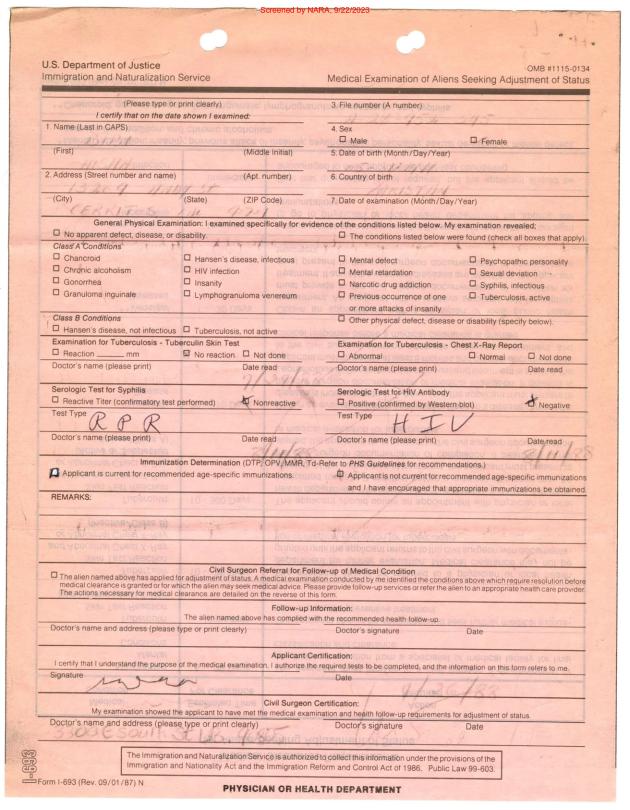 Screened by NARA, 9/22/2023
U.S. Department of Justice
Immigration and Naturalization Service
OMB #1115-0134
Medical Examination of Aliens Seeking Adjustment of Status
(Please type or print clearly)
I certify that on the date shown I examined:
3. File number (A number)
1. Name (Last in CAPS)
4. Sex
Male Female
(First) (Middle Initial)
5. Date of birth (Month/Day/Year)
2. Address (Street number and name) (Apt. number)
6. Country of birth
(City) (State) (ZIP Code)
7. Date of examination (Month/Day/Year)
CERRITOS
General Physical Examination: I examined specifically for evidence of the conditions listed below. My examination revealed;
No apparent defect, disease, or disability.
The conditions listed below were found (check all boxes that apply).
Class A Conditions
Chancroid Hansen's disease, infectious Mental defect Psychopathic personality
Chronic alcoholism HIV infection Mental retardation Sexual deviation
Gonorrhea Insanity Narcotic drug addiction Syphilis, infectious
Granuloma inguinale Lymphogranuloma venereum Previous occurrence of one Tuberculosis, active
or more attacks of insanity
Class B Conditions
Other physical defect, disease or disability (specify below).
Hansen's disease, not infectious Tuberculosis, not active
Examination for Tuberculosis - Tuberculin Skin Test
Reaction ______ mm No reaction Not done
Doctor's name (please print) Date read
Examination for Tuberculosis - Chest X-Ray Report
Abnormal Normal Not done
Doctor's name (please print) Date read
Serologic Test for Syphilis
Reactive Titer (confirmatory test performed) Nonreactive
Test Type
RPR
Doctor's name (please print) Date read
Serologic Test for HIV Antibody
Positive (confirmed by Western blot) Negative
Test Type
HIV
Doctor's name (please print) Date read
8/11/88
8/11/88
Immunization Determination (DTP, OPV, MMR, Td-Refer to PHS Guidelines for recommendations.)
Applicant is current for recommended age-specific immunizations.
Applicant is not current for recommended age-specific immunizations
and I have encouraged that appropriate immunizations be obtained.
REMARKS:
Civil Surgeon Referral for Follow-up of Medical Condition
The alien named above has applied for adjustment of status. A medical examination conducted by me identified the conditions above which require resolution before
medical clearance is granted or for which the alien may seek medical advice. Please provide follow-up services or refer the alien to an appropriate health care provider.
The actions necessary for medical clearance are detailed on the reverse of this form.
Follow-up Information:
The alien named above has complied with the recommended health follow-up.
Doctor's name and address (please type or print clearly) Doctor's signature Date
Applicant Certification:
I certify that I understand the purpose of the medical examination, I authorize the required tests to be completed, and the information on this form refers to me.
Signature Date
Civil Surgeon Certification:
My examination showed the applicant to have met the medical examination and health follow-up requirements for adjustment of status.
Doctor's name and address (please type or print clearly) Doctor's signature Date
The Immigration and Naturalization Service is authorized to collect this information under the provisions of the
Immigration and Nationality Act and the Immigration Reform and Control Act of 1986. Public Law 99-603.
I-693
Form I-693 (Rev. 09/01/87) N
PHYSICIAN OR HEALTH DEPARTMENT